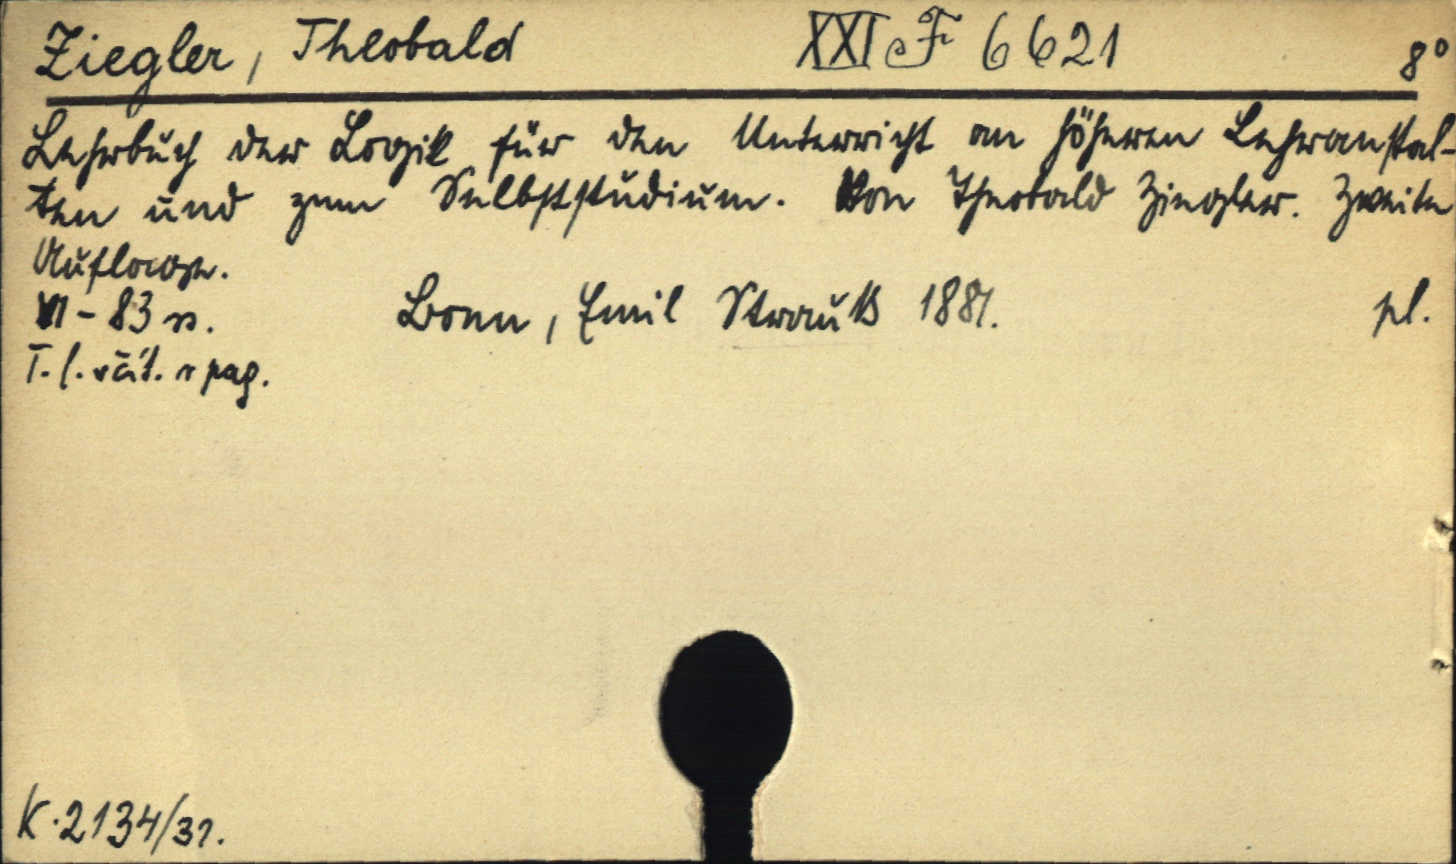 Ziegler, Theobald XXI F 6621 8°
Lehrbuch der Logik für den Unterricht an höheren Lehranstal-
ten und zum Selbststudium. Von Theobald Ziegler. Zweite
Auflage.
VI - 83 s. Bonn, Emil Strauß 1881. pl.
T. l. včít. v pag.
K. 2134/31.